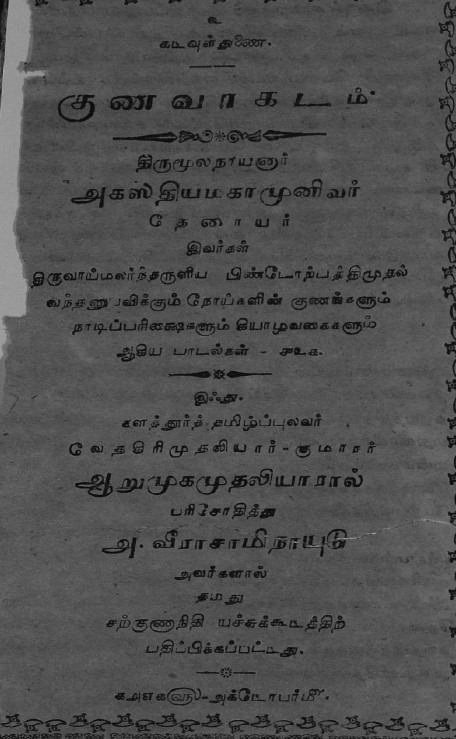 உ
கடவுள்துணை.
குணவாகடம்
திருமூலநாயனார்
அகஸ்தியமகாமுனிவர்
தேரையர்
இவர்கள்
திருவாய்மலர்ந்தருளிய பிண்டோற்பத்திமுதல்
வந்தணுபவிக்கும் நோய்களின் குணங்களும்
நாடிப்பரிக்ஷைகளும் கியாழவகைகளும்
ஆகிய பாடல்கள் -
இஃது.
களத்தூர்த் தமிழ்ப்புலவர்
வேதகிரிமுதலியார் - குமாரர்
ஆறுமுகமுதலியாரால்
பரிசோதித்து
அ. வீராசாமிநாயுடு
அவர்களால்
தமது
சற்குணநிதி யச்சுக்கூடத்திற்
பதிப்பிக்கப்பட்டது.
அக்டோபர்மீ